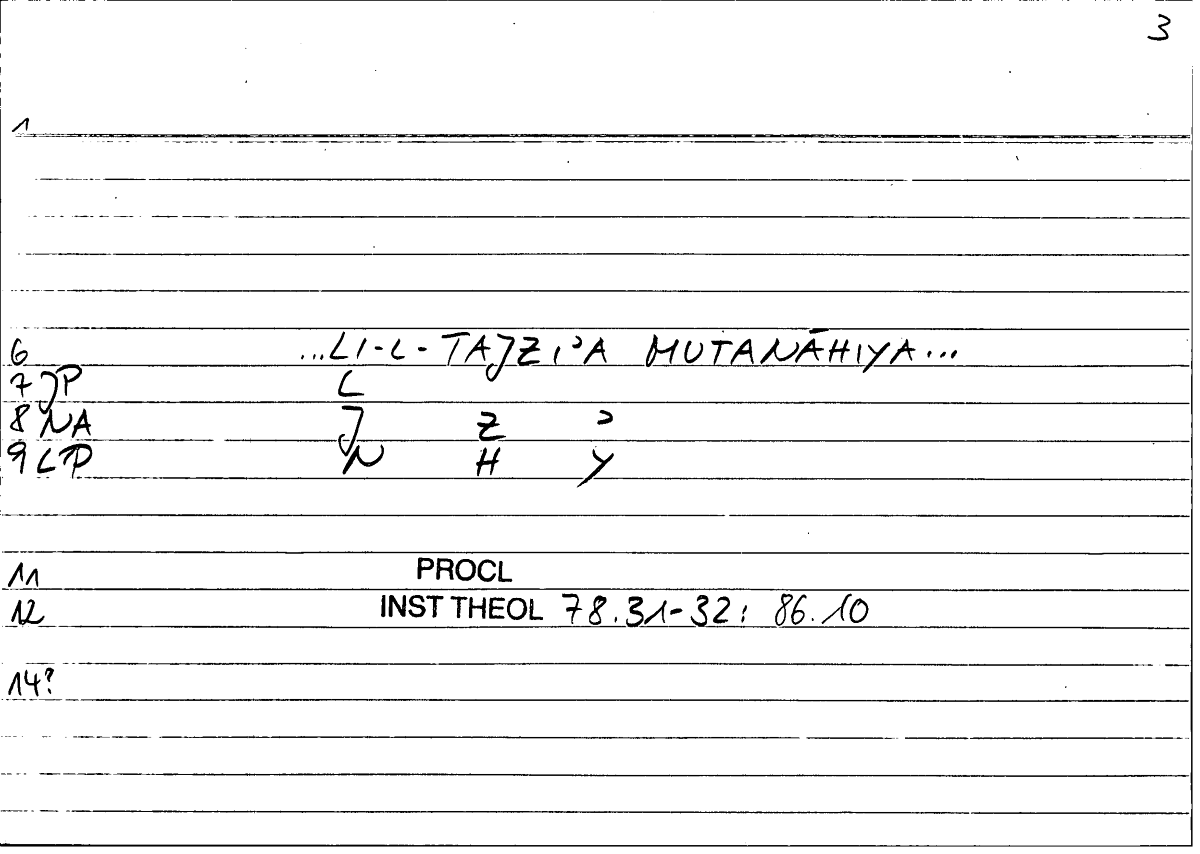 3
1
6 ...LI-L-TAJZIʾA MUTANĀHIYA...
7 JP L
8 NA J Z ʾ
9 LTP N H Y
11 PROCL
12 INST THEOL 78.31-32: 86.10
14?